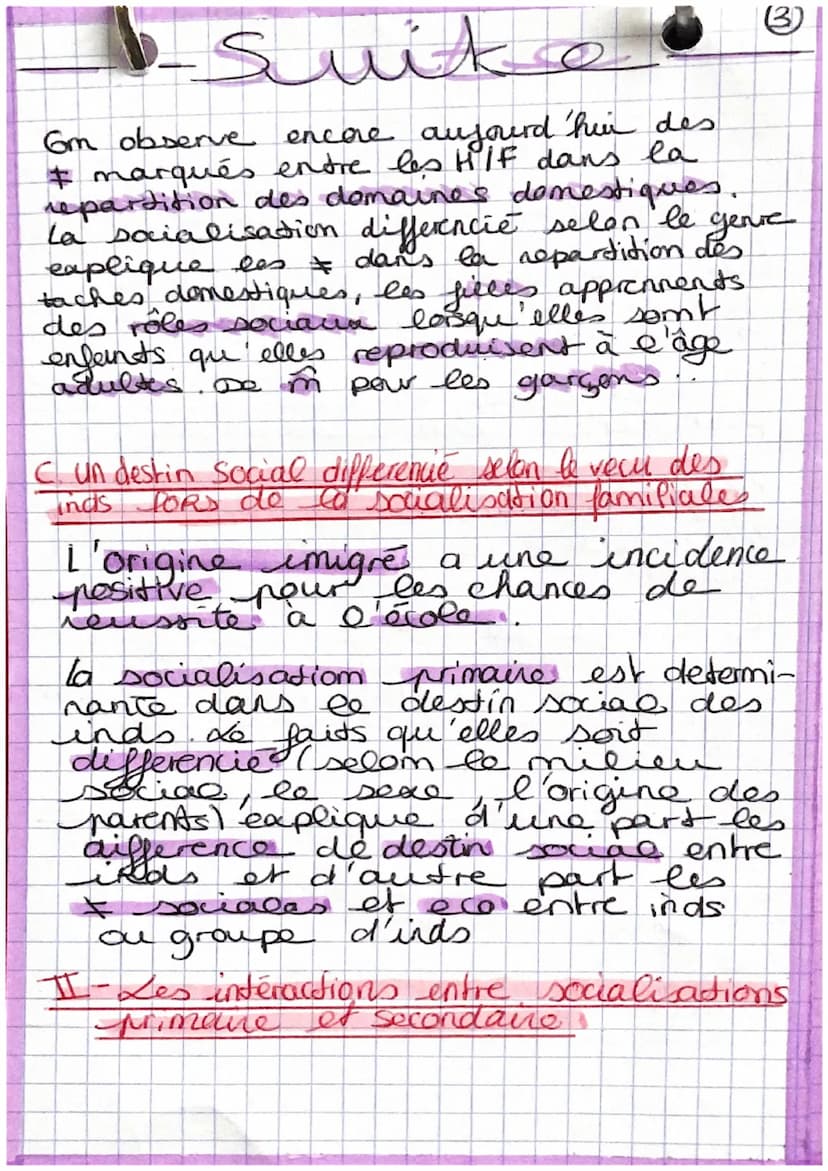 ③
- Suite
On observe encore aujourd'hui des
≠ marqués entre les H/F dans la
repartition des domaines domestiques.
La socialisation differencié selon le genre
explique les ≠ dans la repartition des
taches domestiques, les filles apprennents
des rôles sociaux lorsqu'elles sont
enfants qu'elles reproduisent à l'âge
adultes. De m̂ pour les garçons.
C. Un destin social differencié selon le vecu des
inds lors de la socialisation familiales
L'origine imigré a une incidence
positive pour les chances de
reussite à l'école.
La socialisation primaire est determi-
nante dans le destin social des
inds. Le faits qu'elles soit
differencié (selon le milieu
sociae, le sexe, l'origine des
parents) explique d'une part les
difference de destin social entre
inds et d'autre part les
≠ sociales et eco entre inds
ou groupe d'inds
II - Les intéractions entre socialisations
primaire et secondaire